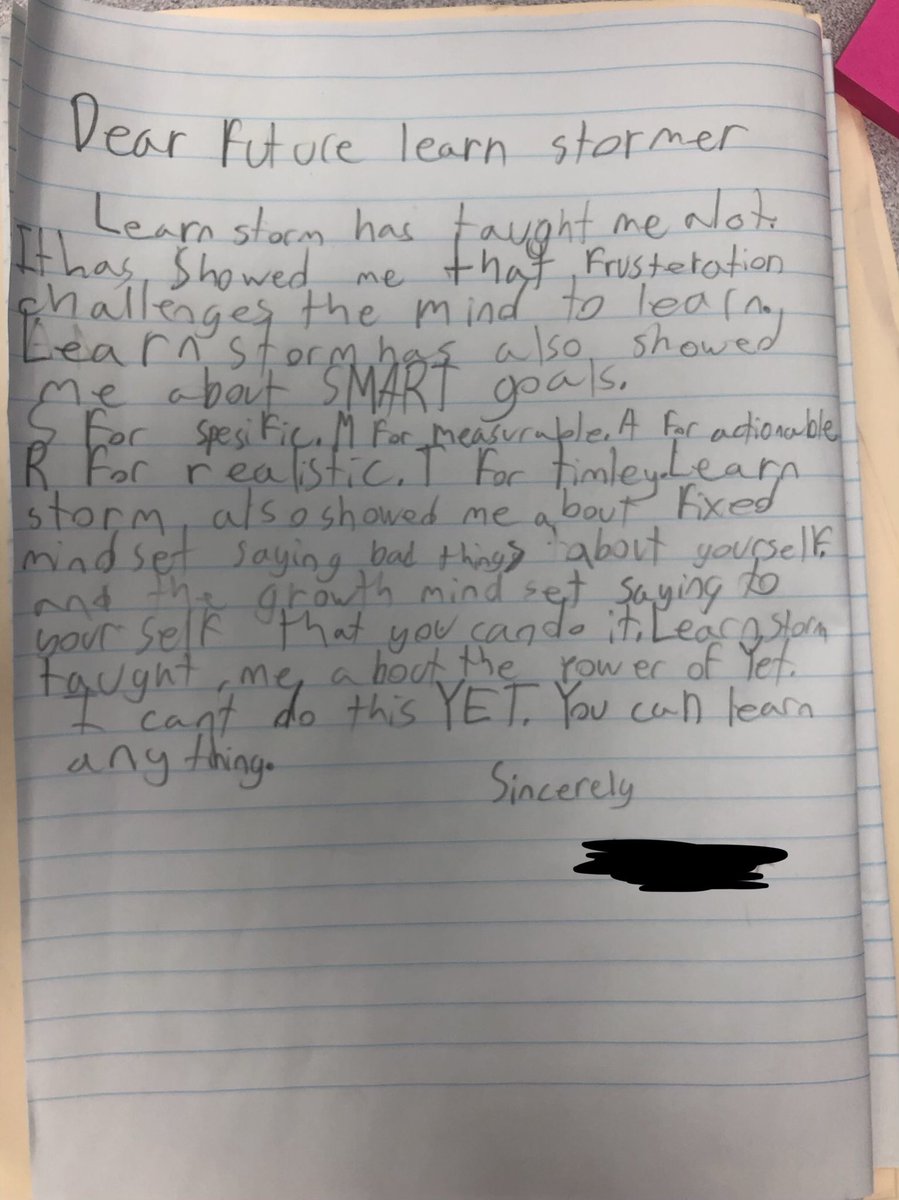 Dear Future learn stormer
Learn storm has taught me alot.
It has showed me that Frusteration
challenges the mind to learn.
Learn storm has also showed
me about SMART goals.
S For spesific. M For measurable. A For actionable
R For realistic. T For timley. Learn
storm also showed me about Fixed
mind set saying bad things about yourself.
and the growth mind set saying to
your self that you can do it. Learn storm
taught me about the power of Yet.
I cant do this YET. You can learn
any thing.
Sincerely